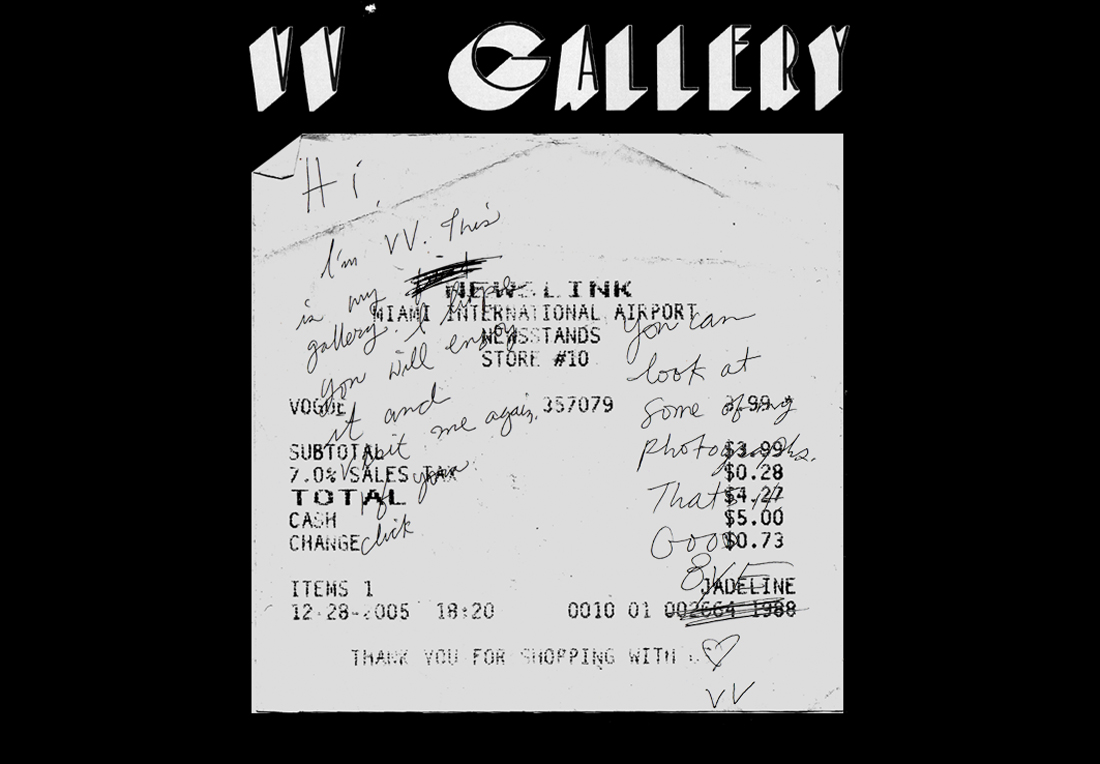 VV GALLERY
Hi,
I'm VV. This
is my
gallery. I hope
you will enjoy
it and
visit me again.
If you
click
You can
look at
some of my
photographs.
That's it
Good
BYE
♡
VV
NEWSLINK
MIAMI INTERNATIONAL AIRPORT
NEWSSTANDS
STORE #10
VOGUE 357079 3.99
SUBTOTAL $3.99
7.0% SALES TAX $0.28
TOTAL $4.27
CASH $5.00
CHANGE $0.73
ITEMS 1 JADELINE
12-28-2005 18:20 0010 01 002664 1988
THANK YOU FOR SHOPPING WITH